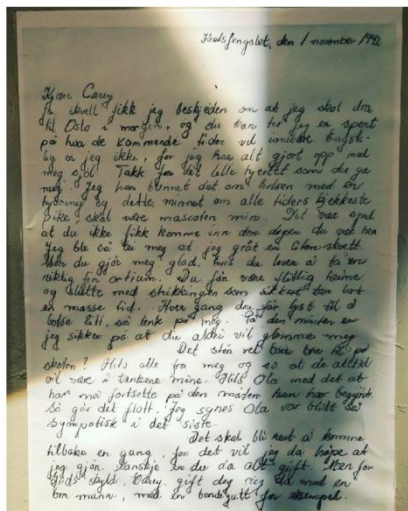 Kretsfengslet, den 1 november 1942
Kjære Carey
Så ikvell fikk jeg beskjeden om at jeg skal dra
til Oslo i morgen, og du kan tro jeg er spent
på hva de kommende tider vil
lig er jeg ikke, for jeg har alt gjort opp med
meg sjøl. Takk for det lille hjertet som du ga
meg. Jeg har bundet det om halsen med en
og dette minnet om alle tiders kjekkeste
pike skal være mascoten min. Det var synd
at du ikke fikk komme inn den dagen du var her
Jeg ble så lei meg at jeg gråt en liten skvett
Men du gjør meg glad, hvis du lover å ta en
riktig fin artium. Du får være flittig heime
og slutte med strikkingen som sikkert tar bort
en masse tid. Hver gang du får lyst til å
litt, så tenk på meg. På den måten er
jeg sikker på at du aldri vil glemme meg
Det står vel bare bra til på
skolen? Hils alle fra meg og si at de alltid
vil være i tankene mine. Hils Ola med det at
han må fortsette på den måten han har begynt
så går det flott. Jeg synes Ola var blitt så
sympatisk i det siste.
Det skal bli rart å komme
tilbake en gang, for det vil jeg da håpe at
jeg gjør. Kanskje er du da alt gift. Men for
Guds skyld, Carey, gift deg med en
bra mann, med en bondegutt for eksempel.